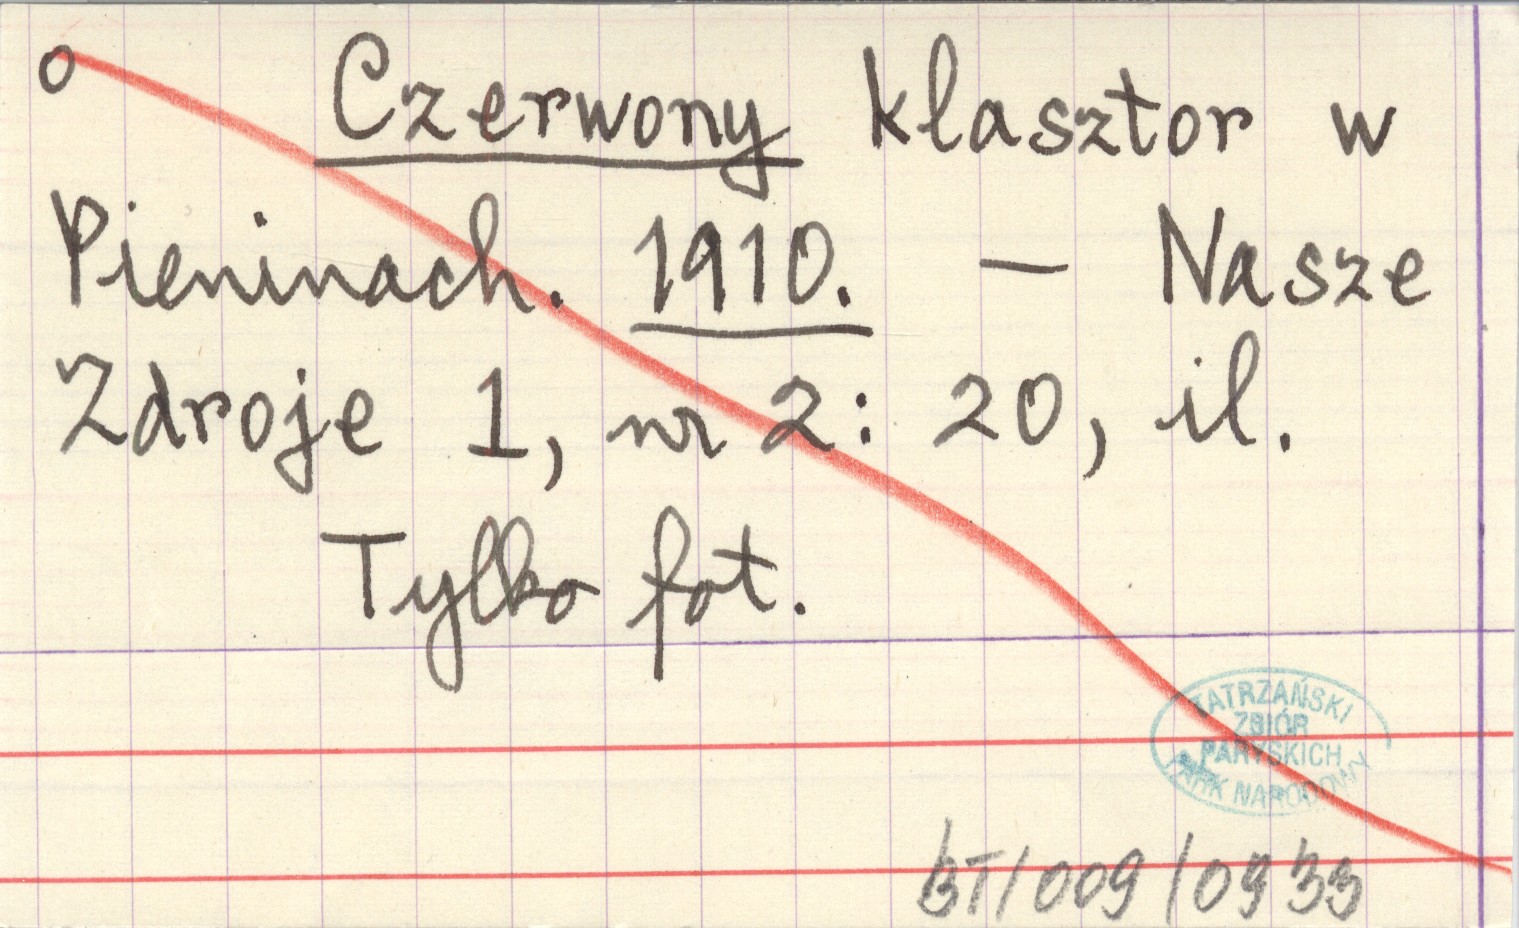 o Czerwony klasztor w
Pieninach. 1910. — Nasze
Zdroje 1, nr 2: 20, il.
Tylko fot.
TATRZAŃSKI
ZBIÓR
PARYSKICH
PARK NARODOWY
BT/009/0933